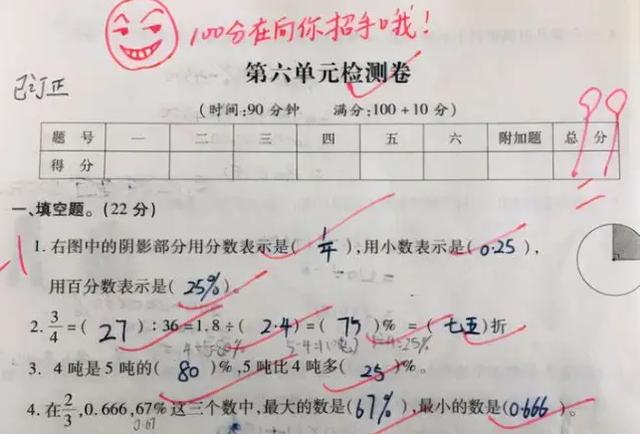 100分在向你招手哦！
第六单元检测卷
已订正
（时间:90分钟 满分:100+10分）
题 号 一 二 三 四 五 六 附加题 总 分
得 分
99
一、填空题。（22分）
-1
1. 右图中的阴影部分用分数表示是( 1/4 ),用小数表示是( 0.25 ),
用百分数表示是( 25% )。
2. 3/4=( 27 ):36=1.8÷( 2.4 )=( 75 )%=( 七五 )折
4÷5=80% 5-4=1(吨) 1÷4=25%
3. 4吨是5吨的( 80 )%,5吨比4吨多( 25 )%。
4. 在2/3,0.666,67%这三个数中,最大的数是( 67% ),最小的数是( 0.666 )。
0.67